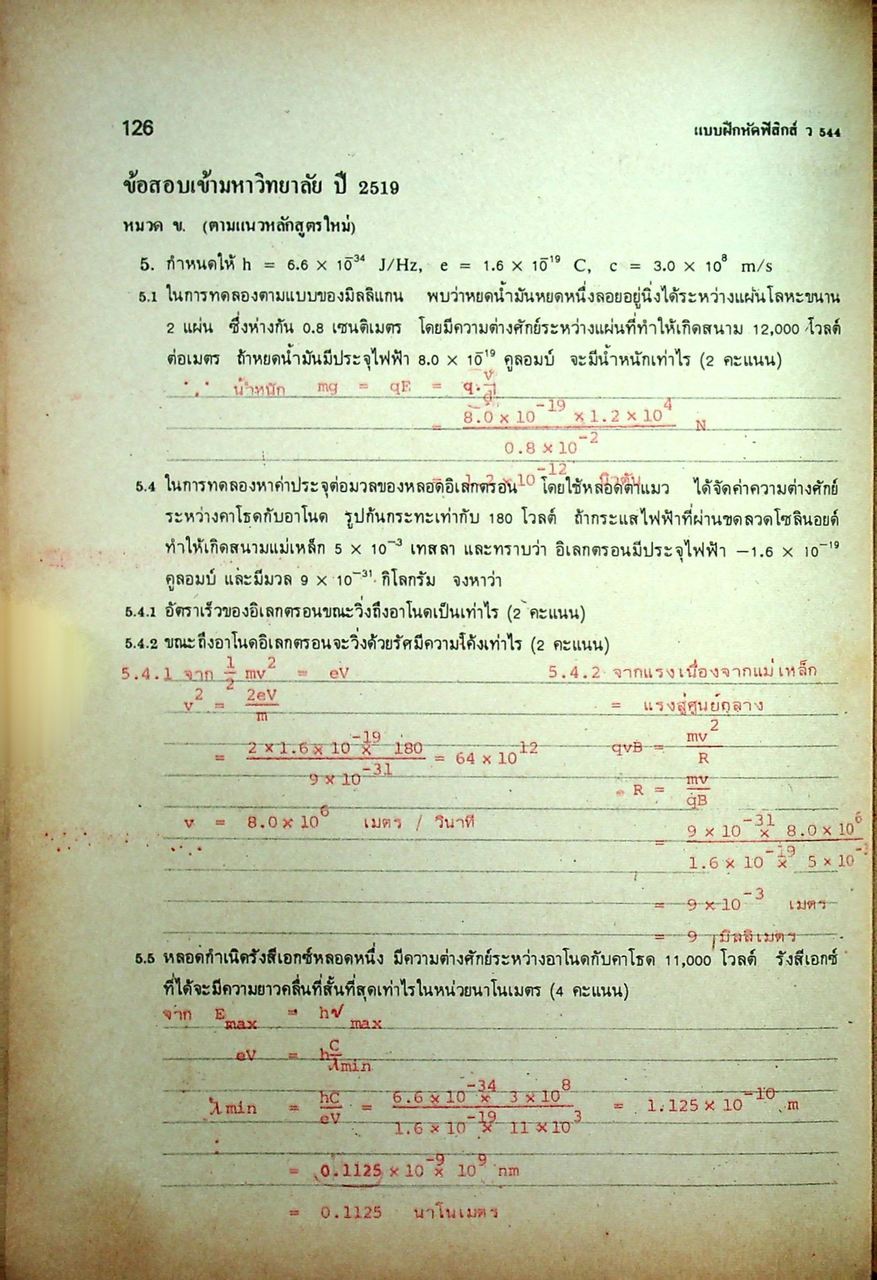 126
แบบฝึกหัดฟิสิกส์ ว 544
ข้อสอบเข้ามหาวิทยาลัย ปี 2519
หมวด ข. (ตามแนวหลักสูตรใหม่)
5. กำหนดให้ h = 6.6 × 10⁻³⁴ J/Hz, e = 1.6 × 10⁻¹⁹ C, c = 3.0 × 10⁸ m/s
5.1 ในการทดลองตามแบบของมิลลิแกน พบว่าหยดน้ำมันหยดหนึ่งลอยอยู่นิ่งได้ระหว่างแผ่นโลหะขนาน
2 แผ่น ซึ่งห่างกัน 0.8 เซนติเมตร โดยมีความต่างศักย์ระหว่างแผ่นที่ทำให้เกิดสนาม 12,000 โวลต์
ต่อเมตร ถ้าหยดน้ำมันมีประจุไฟฟ้า 8.0 × 10⁻¹⁹ คูลอมบ์ จะมีน้ำหนักเท่าไร (2 คะแนน)
∵ น้ำหนัก mg = qE = q.V/d
= 8.0 × 10⁻¹⁹ × 1.2 × 10⁴ / 0.8 × 10⁻² N
= 1.2 × 10⁻¹² นิวตัน
5.4 ในการทดลองหาค่าประจุต่อมวลของหลอดอิเลกตรอน โดยใช้หลอดตาแมว ได้จัดค่าความต่างศักย์
ระหว่างคาโธดกับอาโนด รูปกันกระทะเท่ากับ 180 โวลต์ ถ้ากระแสไฟฟ้าที่ผ่านขดลวดโซลินอยด์
ทำให้เกิดสนามแม่เหล็ก 5 × 10⁻³ เทสลา และทราบว่า อิเลกตรอนมีประจุไฟฟ้า −1.6 × 10⁻¹⁹
คูลอมบ์ และมีมวล 9 × 10⁻³¹ กิโลกรัม จงหาว่า
5.4.1 อัตราเร็วของอิเลกตรอนขณะวิ่งถึงอาโนดเป็นเท่าไร (2 คะแนน)
5.4.2 ขณะถึงอาโนดอิเลกตรอนจะวิ่งด้วยรัศมีความโค้งเท่าไร (2 คะแนน)
5.4.1 จาก 1/2 mv² = eV
v² = 2eV/m
= 2 × 1.6 × 10⁻¹⁹ × 180 / 9 × 10⁻³¹ = 64 × 10¹²
v = 8.0 × 10⁶ เมตร / วินาที
5.4.2 จากแรงเนื่องจากแม่เหล็ก
= แรงสู่ศูนย์กลาง
qvB = mv²/R
R = mv/qB
= 9 × 10⁻³¹ × 8.0 × 10⁶ / 1.6 × 10⁻¹⁹ × 5 × 10⁻
= 9 × 10⁻³ เมตร
= 9 มิลลิเมตร
5.5 หลอดกำเนิดรังสีเอกซ์หลอดหนึ่ง มีความต่างศักย์ระหว่างอาโนดกับคาโธด 11,000 โวลต์ รังสีเอกซ์
ที่ได้จะมีความยาวคลื่นที่สั้นที่สุดเท่าไรในหน่วยนาโนเมตร (4 คะแนน)
จาก Emax = h√max
eV = hC/λmin
λmin = hC/eV = 6.6 × 10⁻³⁴ × 3 × 10⁸ / 1.6 × 10⁻¹⁹ × 11 × 10³ = 1.125 × 10⁻¹⁰ m
= 0.1125 × 10⁻⁹ × 10⁹ nm
= 0.1125 นาโนเมตร